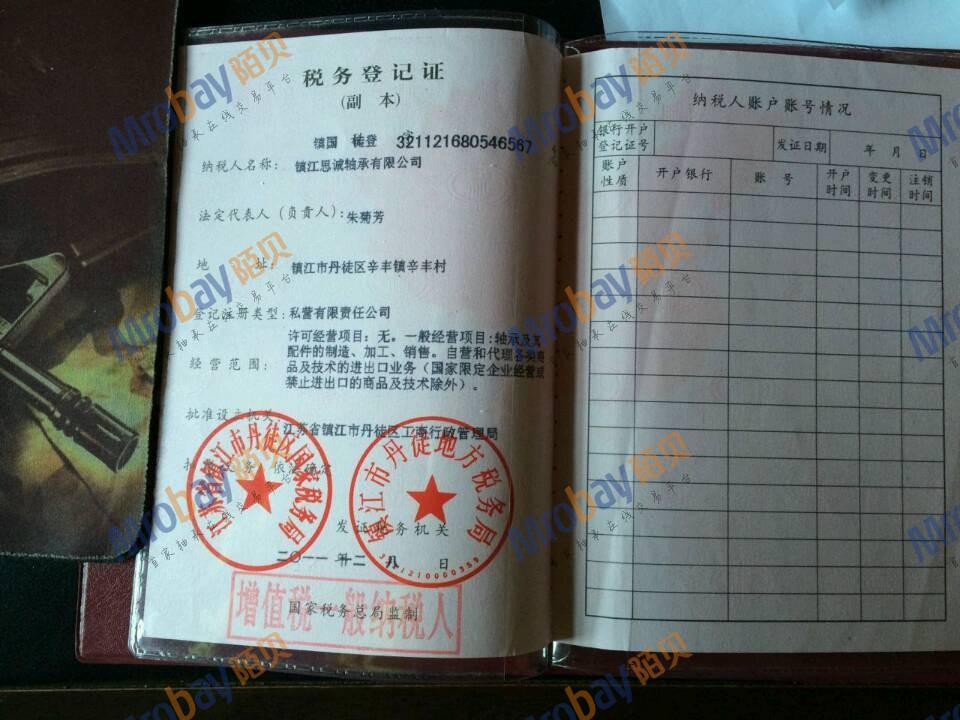 税务登记证
(副 本)
镇国 税登 321121680546567
纳税人名称: 镇江思诚轴承有限公司
法定代表人(负责人): 朱菊芳
地 址: 镇江市丹徒区辛丰镇辛丰村
登记注册类型: 私营有限责任公司
经营范围: 许可经营项目:无。一般经营项目:轴承及其
配件的制造、加工、销售。自营和代理各类商
品及技术的进出口业务(国家限定企业经营或
禁止进出口的商品及技术除外)。
批准设立机关:
江苏省镇江市丹徒区工商行政管理局
扣缴义务 依法确定
江苏省镇江市丹徒区国家税务局
镇江市丹徒地方税务局
发证税务机关
二〇一一年二 八 日
增值税一般纳税人
国家税务总局监制
纳税人账户账号情况
银行开户
登记证号
发证日期 年 月 日
账户
性质
开户银行
账 号
开户
时间
变更
时间
注销
时间
Mrobay陌贝
首家轴承在线交易平台